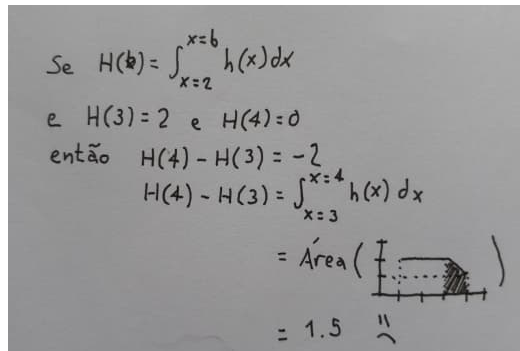 Se H(b) = ∫_{x=2}^{x=b} h(x) dx
e H(3) = 2 e H(4) = 0
então H(4) - H(3) = -2
H(4) - H(3) = ∫_{x=3}^{x=4} h(x) dx
= Área ( )
= 1.5 :(